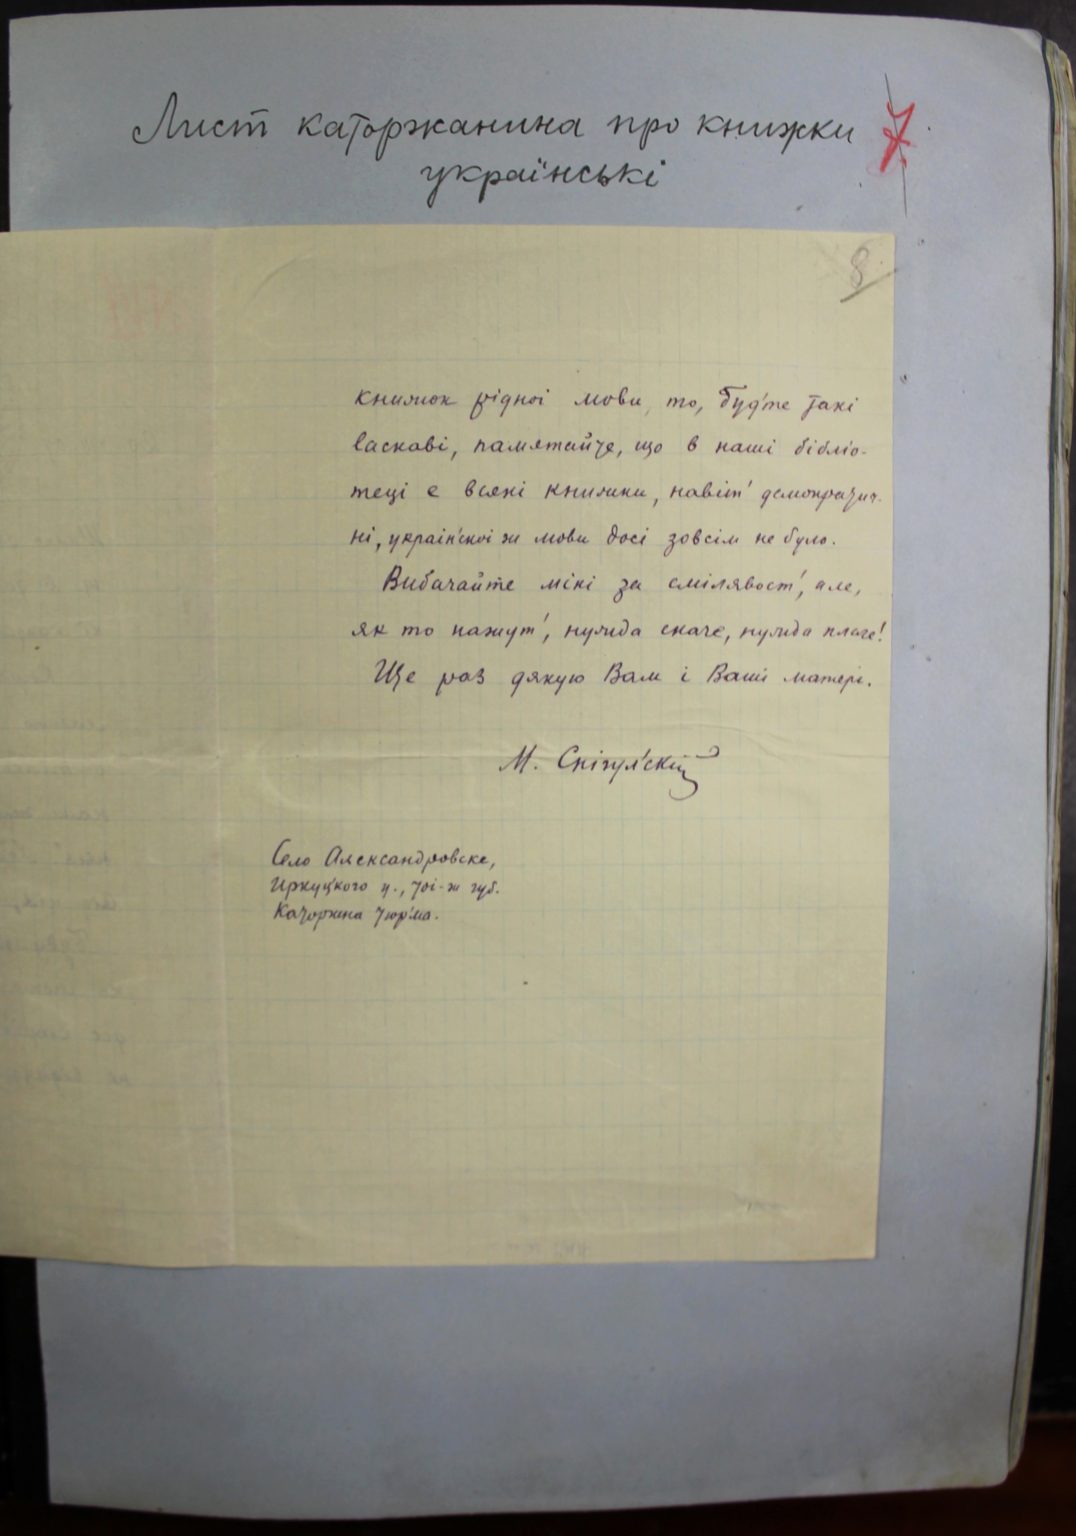 Лист каторжанина про книжки
українські
7
8
книжок рідноі мови, то, буд'те такі
ласкаві, памятайте, що в наші бібліо-
теці є всякі книжки, навіт' демократич-
ні, украін'скоі ж мови досі зовсім не було.
Вибачайте міні за смілявост', але,
як то кажут', нужда скаче, нужда плаче!
Ще раз дякую Вам і Ваші матері.
М. Спігул'скій
Село Александровске,
Иркуц'кого у., тоі-ж губ.
Каторжна тюр'ма.